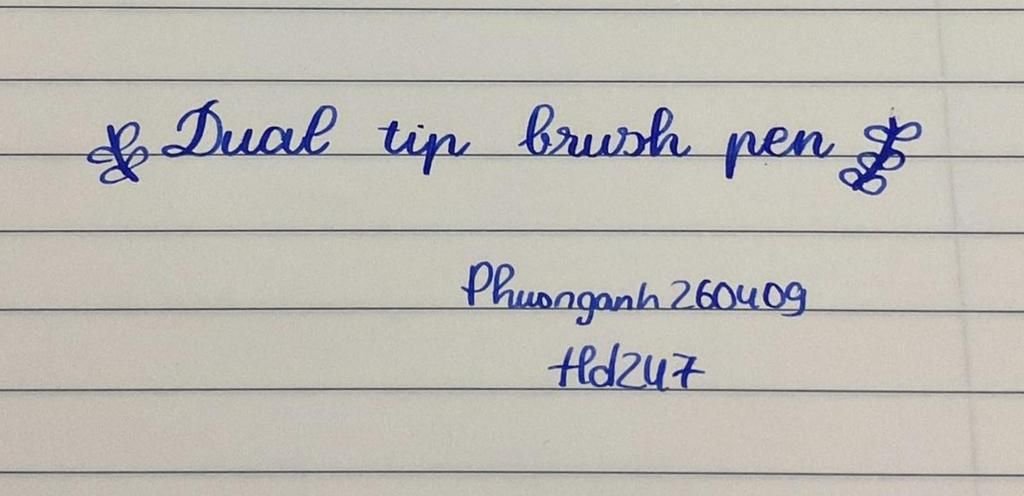 Dual tip brush pen
Phuonganh260409
Hd247